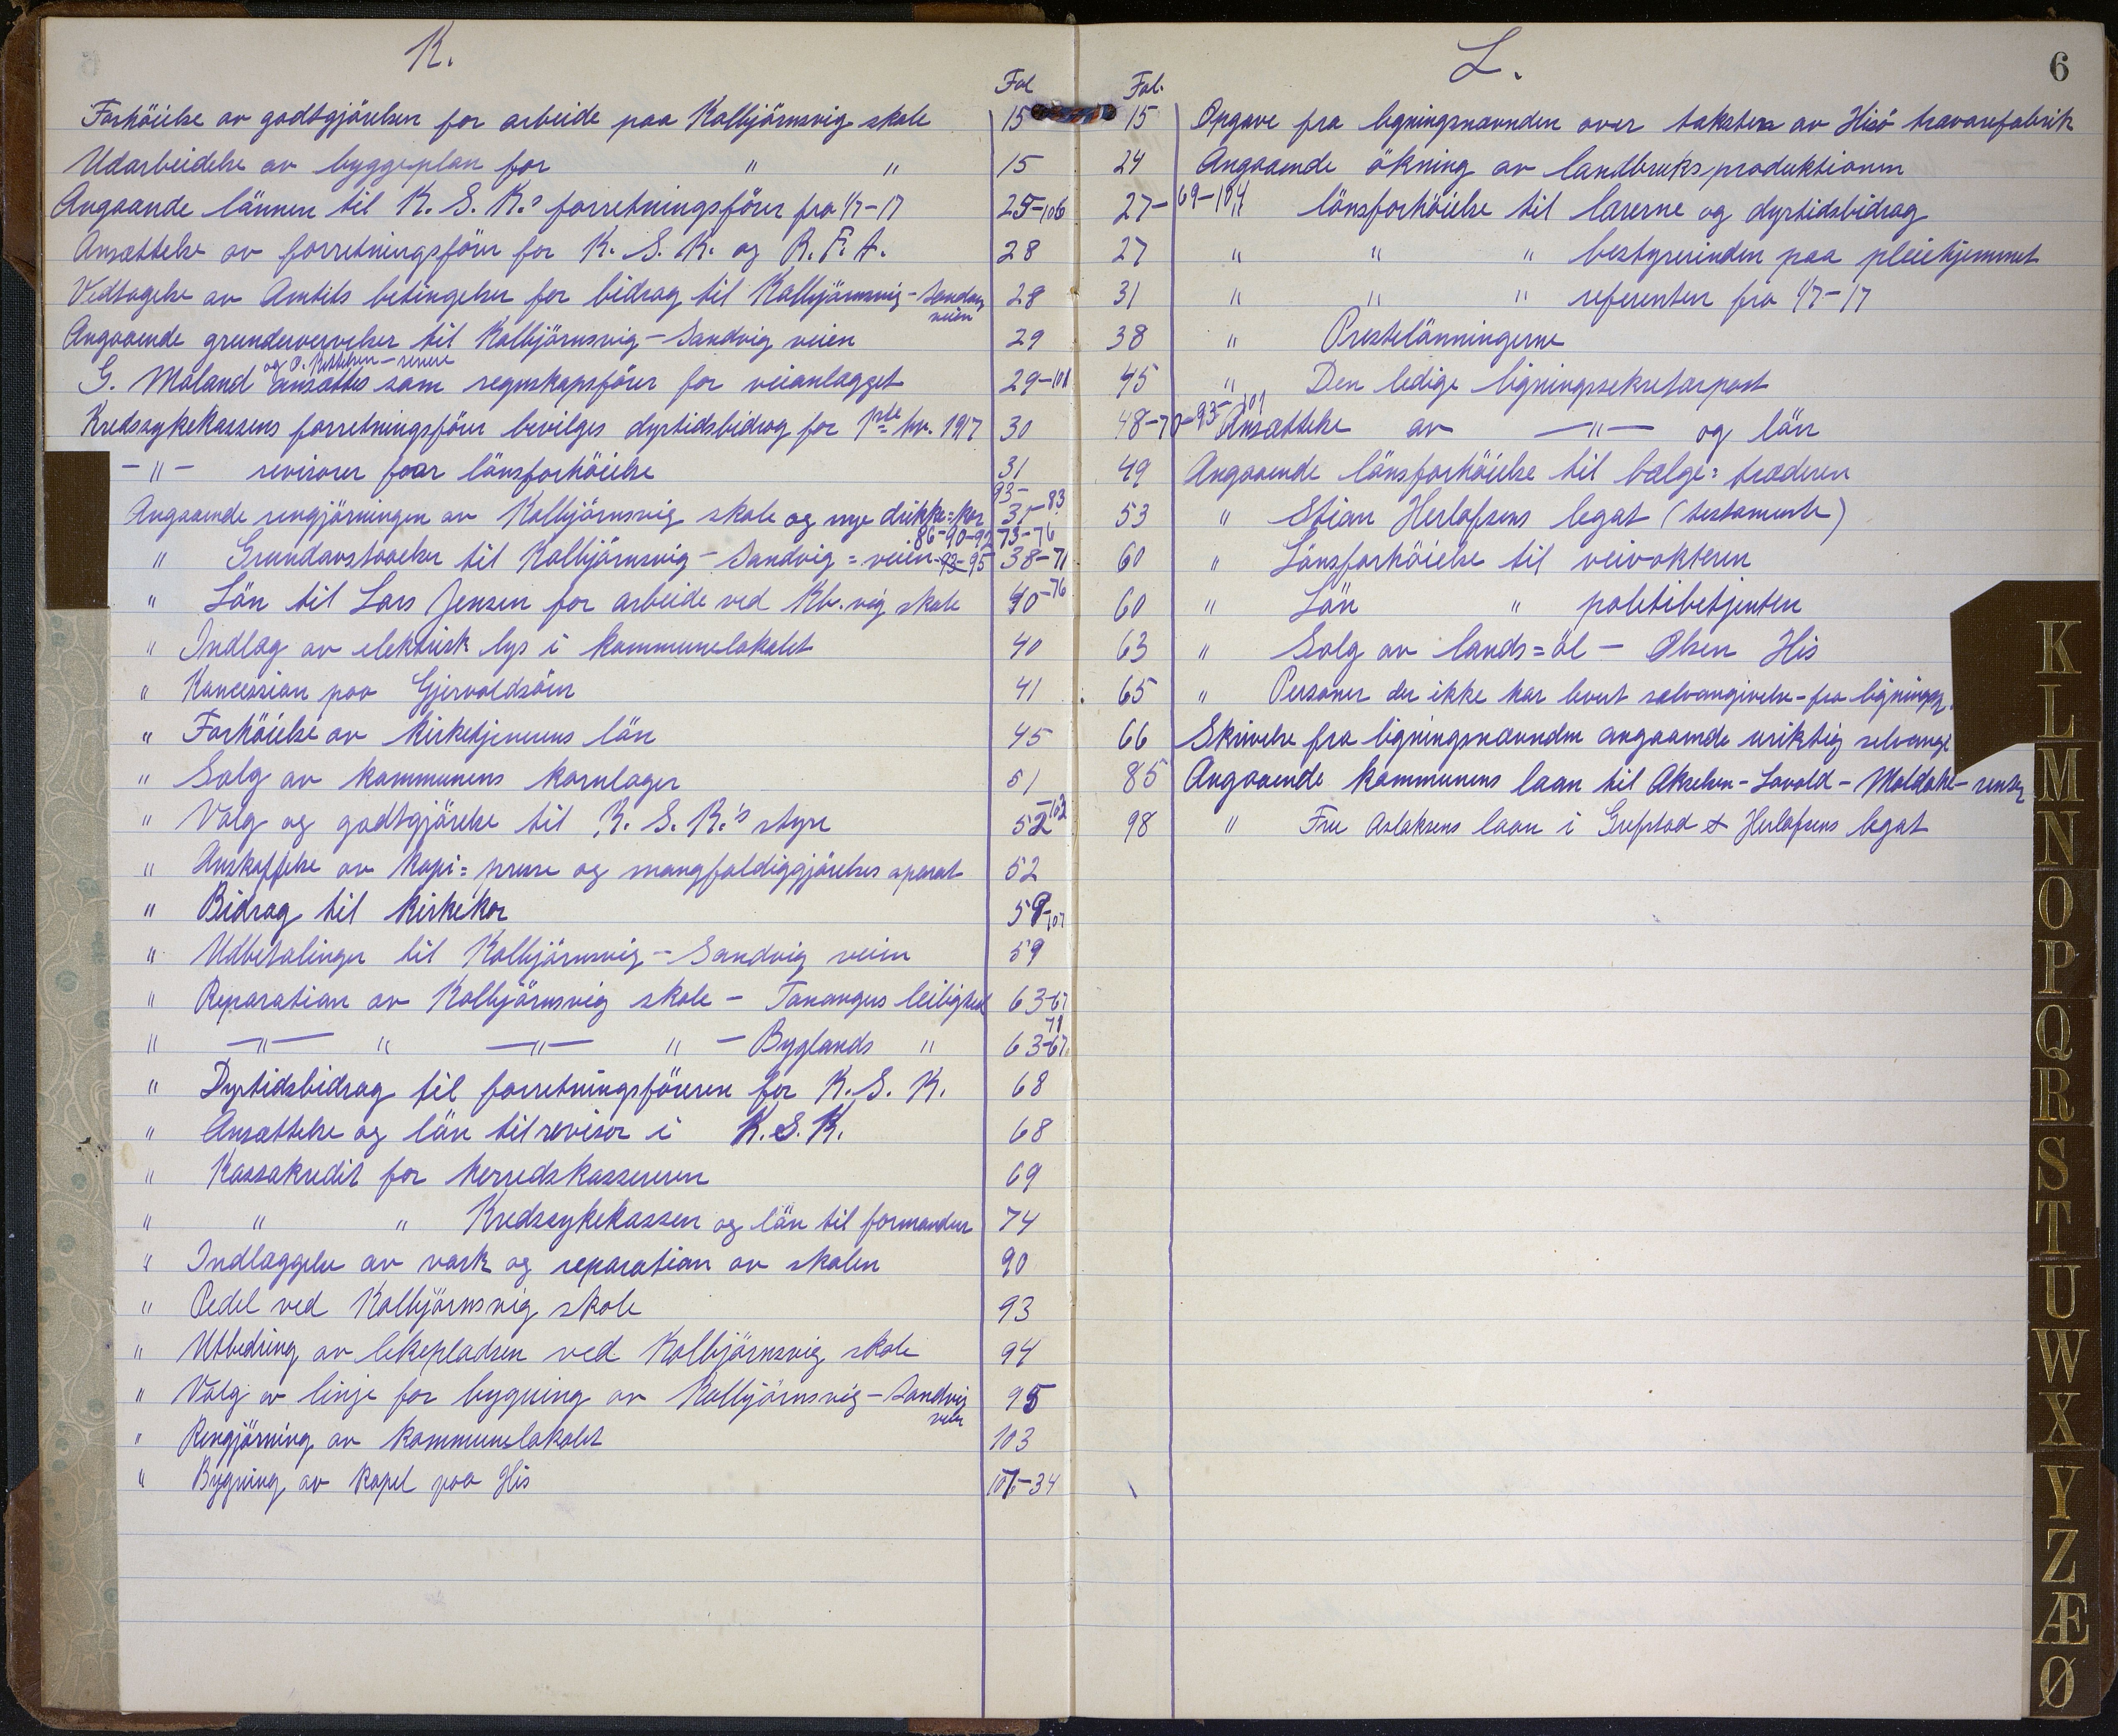 K.
Fol
Forhöielse av godtgjörelsen for arbeide paa Kolbjörnsvig skole 15
Udarbeidelse av byggeplan for " " 15
Angaaende lönnen til K. S. K.s forretningsförer fra 1/7-17 25-106
Ansættelse av forretningsförer for K. S. K. og R. F. A. 28
Vedtagelse av Amtets betingelser for bidrag til Kolbjörnsvig-Sandvig veien 28
Angaaende grunderververvelser til Kolbjörnsvig-Sandvig veien 29
og O. Kittelsen - senere
G. Moland ansættes som regnskapsförer for veianlægget 29-101
Kredssykekassens forretningsförer bevilges dyrtidsbidrag for 1ste hv. 1917 30
-"- revisorer faar lönsforhöielse 31
Angaaende rengjörningen av Kolbjörnsvig skole og nye drikke=kar 35-83 93-
86-90-92 73-76
" Grundavstaaelser til Kolbjörnsvig-Sandvig=veien-93-95 38-71
" Lön til Lars Jensen for arbeide ved Kb.vig skole 40-76
" Indlæg av elektrisk lys i kommunelokalet 40
" Koncession paa Gjervoldsöen 41
" Forhöielse av kirketjenerens lön 45
" Salg av kommunens kornlager 51
" Valg og godtgjörelse til K. S. K.'s styre 52-102
" Anskaffelse av kopi=presse og mangfoldiggjörelses aparat 52
" Bidrag til kirkekor 59-107
" Udbetalinger til Kolbjörnsvig-Sandvig veien 59
" Reparation av Kolbjörnsvig skole - Tanangers leilighed 63-67
" -"- " -"- " - Byglands " 63-67 71
" Dyrtidsbidrag til forretningsföreren for K. S. K. 68
" Ansættelse og lön til revisor i K. S. K. 68
" Kassakredit for herredskassereren 69
" " " Kredssykekassen og lön til formanden 74
" Indlæggelse av vask og reparation av skolen 90
" Pedel ved Kolbjörnsvig skole 93
" Utbedring av lekepladsen ved Kolbjörnsvig skole 94
" Valg av linje for bygning av Kolbjörnsvig-Sandvig veien 95
" Rengjörning av kommunelokalet 103
" Bygning av kapel paa His 107-34
L.
6
Fol.
15 Opgave fra ligningsnævnden over taksten av Hisö trævarefabrik
24 Angaaende ökning av landbruksproduktionen
27-69-104 " lönsforhöielse til lærerne og dyrtidsbidrag
27 " " " bestyrerinden paa pleiehjemmet
31 " " " referenten fra 1/7-17
38 " Prestelönningerne
45 " Den ledige ligningssekretærpost
48-70-93-101 Ansættelse av -"- og lön
49 Angaaende lönsforhöielse til bælge=træderen
53 " Stian Herlofsens legat (testamente)
60 " Lönsforhöielse til veivokteren
60 " Lön " politibetjenten
63 " Salg av lands=öl - Olsen His
65 " Personer der ikke har levert selvangivelse - fra ligningsn.
66 Skrivelse fra ligningsnævnden angaaende uriktig selvangi
85 Angaaende kommunens laan til Akselsen-Lovold-Moldake-renter
98 " Fru Aslaksens laan i Grefstad & Herlofsens legat
K
L
M
N
O
P
Q
R
S
T
U
W
X
Y
Z
Æ
Ø